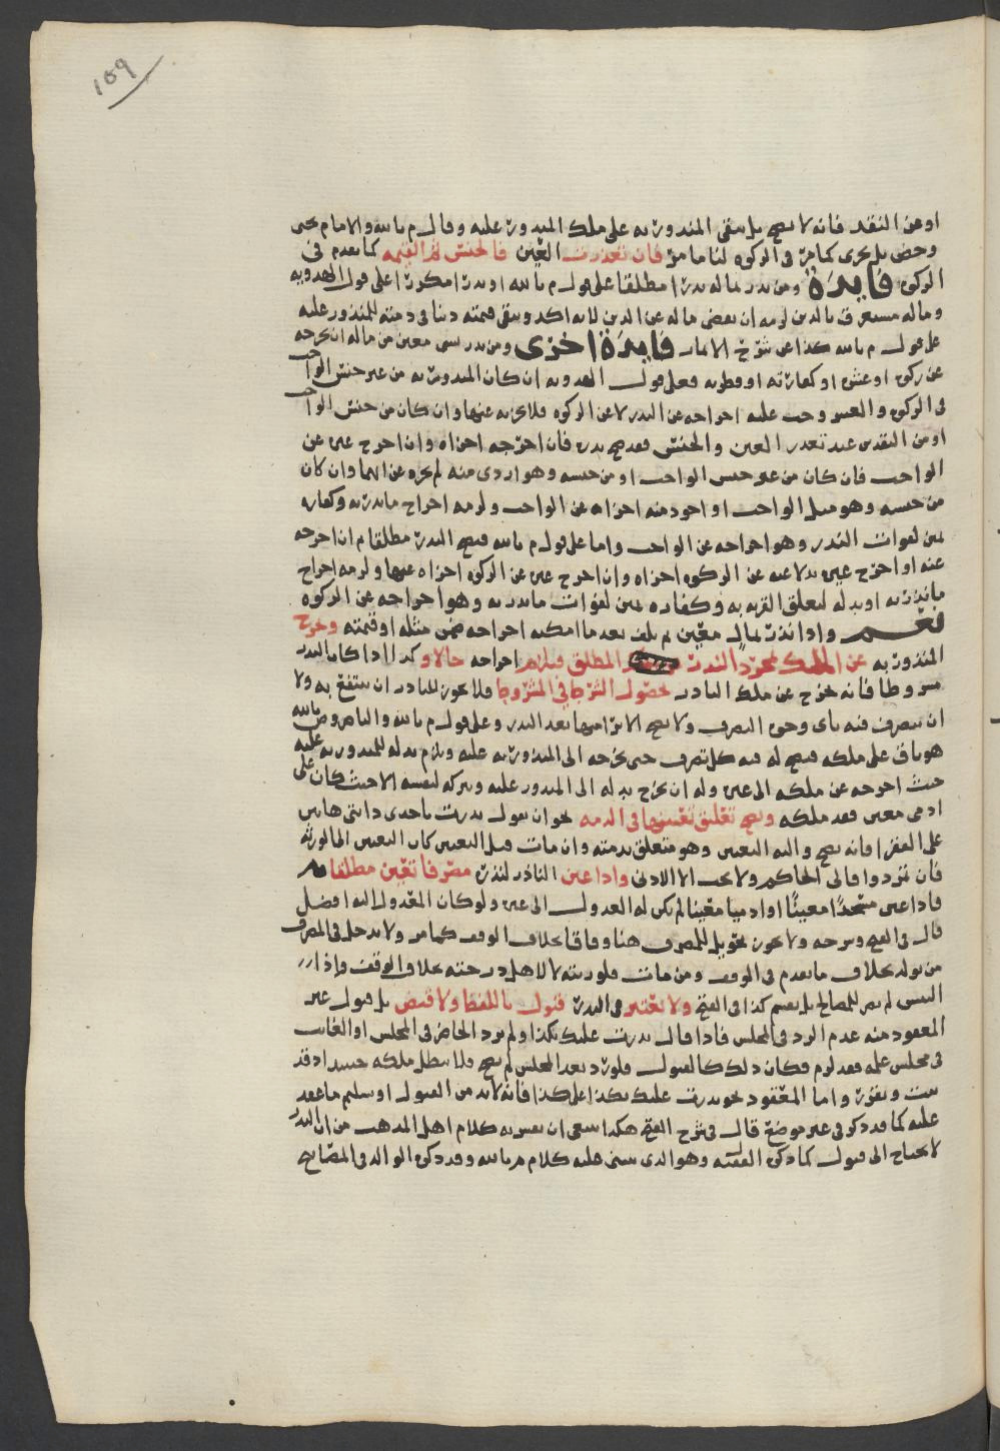 159
او عن النقد فانه لا يصح بل يبقى المنذور به على ملك المنذور عليه وقال م بالله والامام يحيى
بل يجزي كما مر في الزكوة لنا ما مر فان تعذرت العين فالجنس ثم القيمه كما تقدم في
الزكوة فايدة ومن نذر بماله نذرا مطلقا على قول م بالله او نذرا مكررا على قول الهدويه
وماله مستغرق بالدين لزمه ان يقضي ماله عن الدين لانه اكد ويبقى قيمته دينا في ذمته للمنذور عليه
على قول م بالله كذا عن شرح الاثمار فايدة اخرى ومن نذر بشي معين من ماله ان يخرجه
عن زكوة او عشر او كفارته او فطرته فعلى قول الهدويه ان كان المنذور به من غير جنس الواجب
في الزكوة والعشر وجب عليه اخراجه عن النذر لا عن الزكوة فلا يجزيه عنها وان كان من جنس الواجب
او من النقدين عند تعذر العين والجنس فقد صح نذره فان اخرجه اجزاه وان اخرج غيره عن
الواجب فان كان من غير جنس الواجب او من جنسه وهو اردى منه لم يجزه عن ايهما وان كان
من جنسه وهو مثل الواجب او اجود منه اجزاه عن الواجب ولزمه اخراج ما نذر به وكفاره
يمين لفوات النذر وهو اخراجه عن الواجب واما على قول م بالله فيصح النذر مطلقا م ان اخرجه
عنه او اخرج غيره بدلا عنه عن الزكوة اجزاه وان اخرج غيره عن الزكوة اجزاه عنها ولزمه اخراج
ما نذر به او بدله لتعلق القربه به وكفاره يمين لفوات ما نذر به وهو اخراجه عن الزكوة
نعم واذا نذر بمال معين ثم تلف بعد ما امكنه اخراجه ضمن مثله او قيمته وخرج
المنذور به عن الملك بمجرد النذر المطلق فيلزم اخراجه حالا وكذا اذا كان النذر
مشروطا فانه يخرج عن ملك الناذر بحصول الشرط في المشروط فلا يجوز للناذر ان ينتفع به ولا
ان يتصرف فيه باي وجوه التصرف ولا يصح الا بزامهما بعد النذر وعلى قول م بالله والناصر وص بالله
هو باق على ملكه فيصح له فيه كل تصرف حتى يخرجه الى المنذور به عليه ويلزم بدله للمنذور به عليه
حيث اخرجه عن ملكه الى غيره وله ان يخرج بدله الى المنذور عليه ويتركه لنفسه الا حيث كان على
ادمي معين فقد ملكه ويصح تعليق تعيينها في الذمه نحو ان يقول نذرت باحدى دابتي هاتين
على الفقرا فانه يصح واليه التعيين وهو متعلق بذمته وان مات قبل التعيين كان التعيين الى الورثه
فان تمردوا فالى الحاكم ولا يجب الا الادنى واذا عين الناذر لنذره مصرفا تعين مطلقا
فاذا عين مسجدا معينا او ادميا معينا لم يكن له العدول الى غيره ولو كان المعدول اليه افضل
قال في الفتح وشرحه ولا يجوز تحويل للمصرف هنا وفاقا بخلاف الوقف كما مر ولا يدخل في المصرف
من تولد بخلاف ما تقدم في الوقف ومن مات فلورثته لا لاهل درجته بخلاف الوقف واذا
التبس لم يصر للمصالح بل يقسم كذا في الفتح ولا يعتبر في النذر قبول باللفظ ولا قبض بل قبول غير
المعقود منه عدم الرد في المجلس فاذا قال نذرت عليك بكذا ولم يرد الحاضر في المجلس او الغايب
في مجلس علمه فقد لزم فكان ذلك كالقبول فلو رد بعد المجلس لم يصح فلا يبطل ملكه حينيذ اذ قد
ثبت وتقرر واما المعقود نحو نذرت عليك بكذا على كذا فانه لا بد من القبول او تسليم ما عقد
عليه كما قد ذكر في غير موضع قال في شرح الفتح هكذا ينبغي ان يفسر به كلام اهل المذهب من ان النذر
لا يحتاج الى قبول كما ذكره الفقيه وهو الذي ينبني عليه كلام م بالله وقد ذكره الوالد في المصابيح